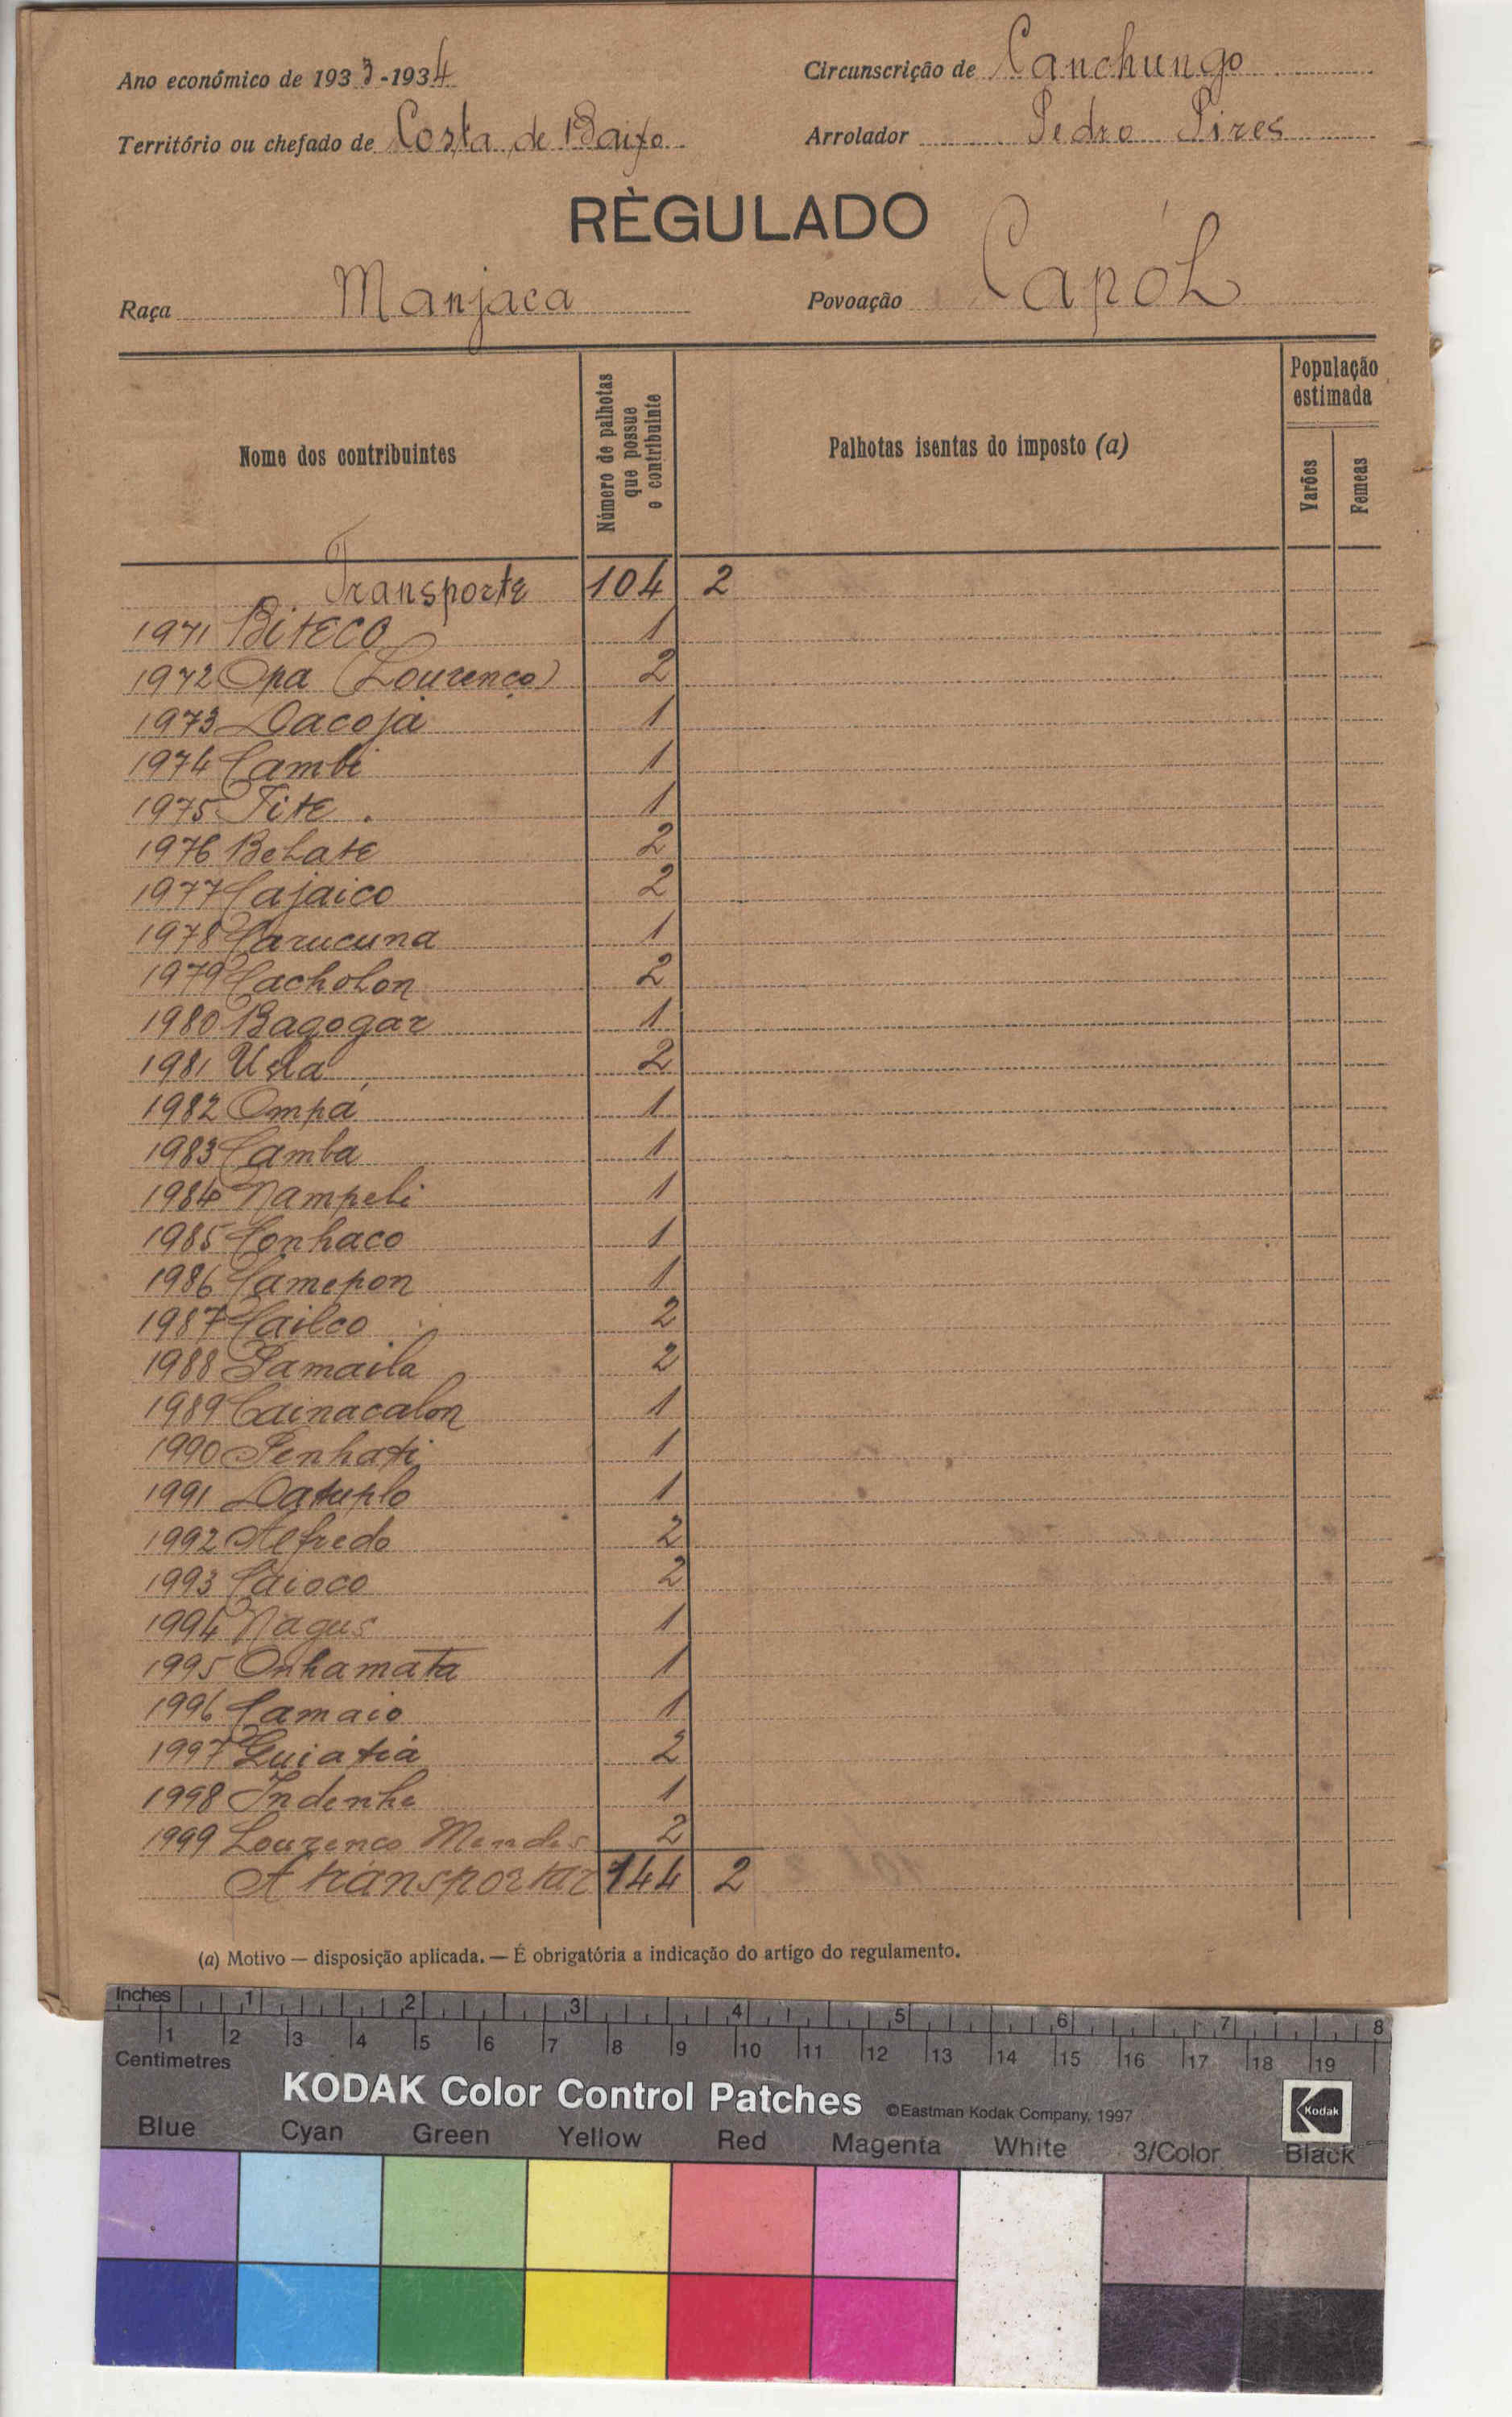 Ano económico de 1933-1934
Circunscrição de Canchungo
Território ou chefado de Costa de Baixo
Arrolador Pedro Pires
RÈGULADO
Raça Manjaca
Povoação Capól
Nome dos contribuintes
Número de palhotas que possue o contribuinte
Palhotas isentas do imposto (a)
População estimada
Varões
Femeas
Transporte 104 2
1971 Biteco 1
1972 Opa (Lourenço) 2
1973 Dacoja 1
1974 Cambi 1
1975 Tite 1
1976 Belate 2
1977 Cajaico 2
1978 Carucuna 1
1979 Cacholon 2
1980 Bagogar 1
1981 Usla 2
1982 Ompá 1
1983 Camba 1
1984 Nampeli 1
1985 Conhaco 1
1986 Camepon 1
1987 Cailco 2
1988 Pamaila 2
1989 Cainacalon 1
1990 Penhati 1
1991 Datuplo 1
1992 Alfredo 2
1993 Caioco 2
1994 Nagus 1
1995 Onhamata 1
1996 Camaio 1
1997 Guiatia 2
1998 Indenhe 1
1999 Lourenco Mendes 2
A transportar 144 2
(a) Motivo — disposição aplicada. — É obrigatória a indicação do artigo do regulamento.
Inches 1 2 3 4 5 6 7 8
1 2 3 4 5 6 7 8 9 10 11 12 13 14 15 16 17 18 19
Centimetres
KODAK Color Control Patches ©Eastman Kodak Company, 1997 Kodak
Blue Cyan Green Yellow Red Magenta White 3/Color Black